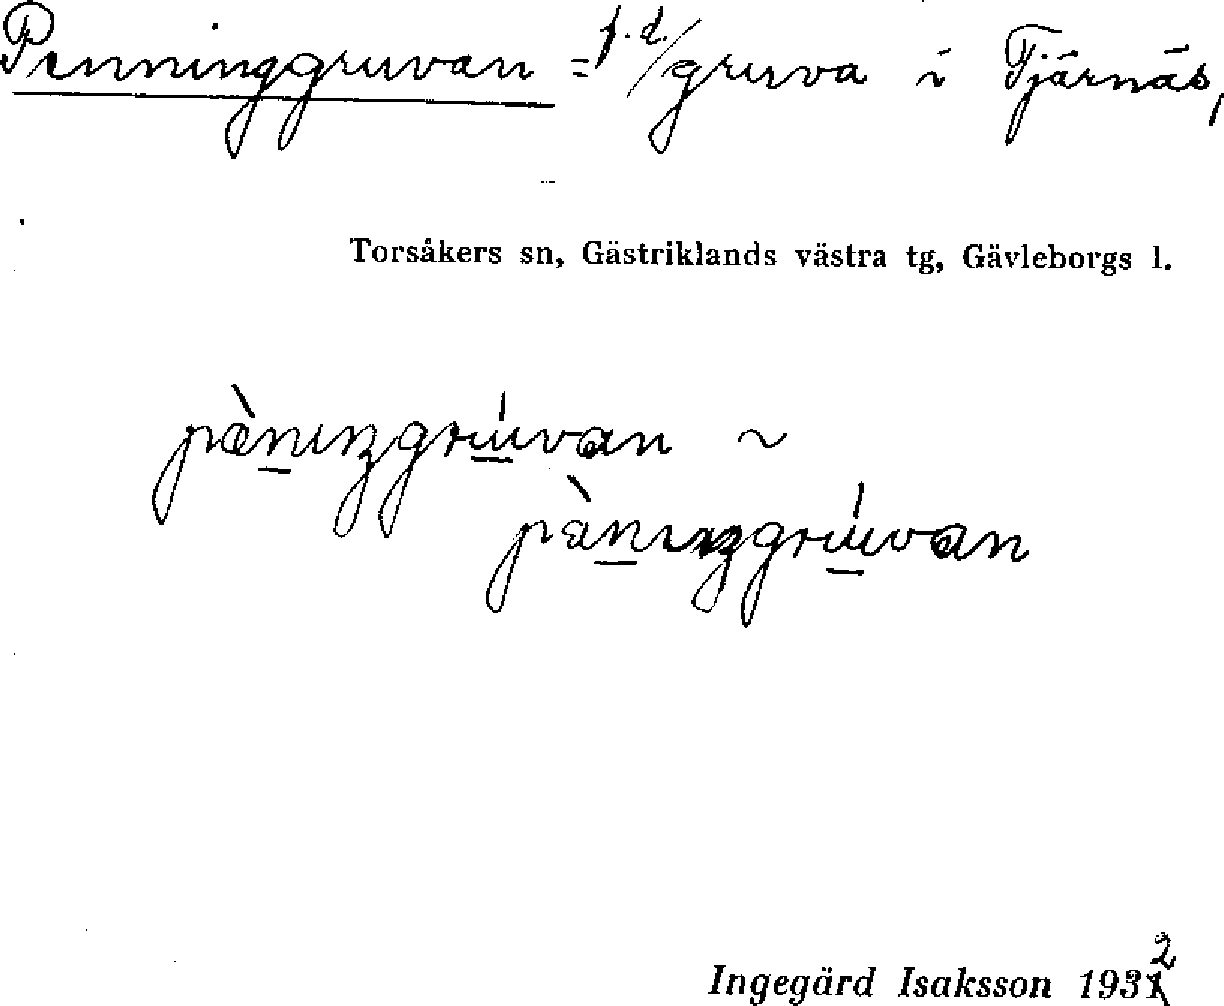 Penninggruvan = f.d. gruva i Tjärnäs,
Torsåkers sn, Gästriklands västra tg, Gävleborgs l.
pæ̀nıŋgrúvan ~
pànıŋgrúvan
Ingegärd Isaksson 1932